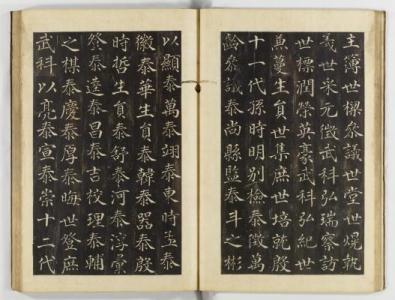 主簿世樑叅議世堂世熀執
義世采元徵武科弘瑞察訪
世標潤榮英豪武科弘紀世
燕夔生員世集庶世培就殷
十一代孫時明別檢泰徵萬
齡叅議泰尚縣監泰斗之彬
以顯泰萬泰翊泰東時孟泰
徵泰華生員泰韓泰器泰殷
時哲生員泰舒泰河泰淳彙
發泰逵泰昌泰吉校理泰輔
之楳泰慶泰厚泰晦世發庶
武科以亮泰宣泰崇十二代